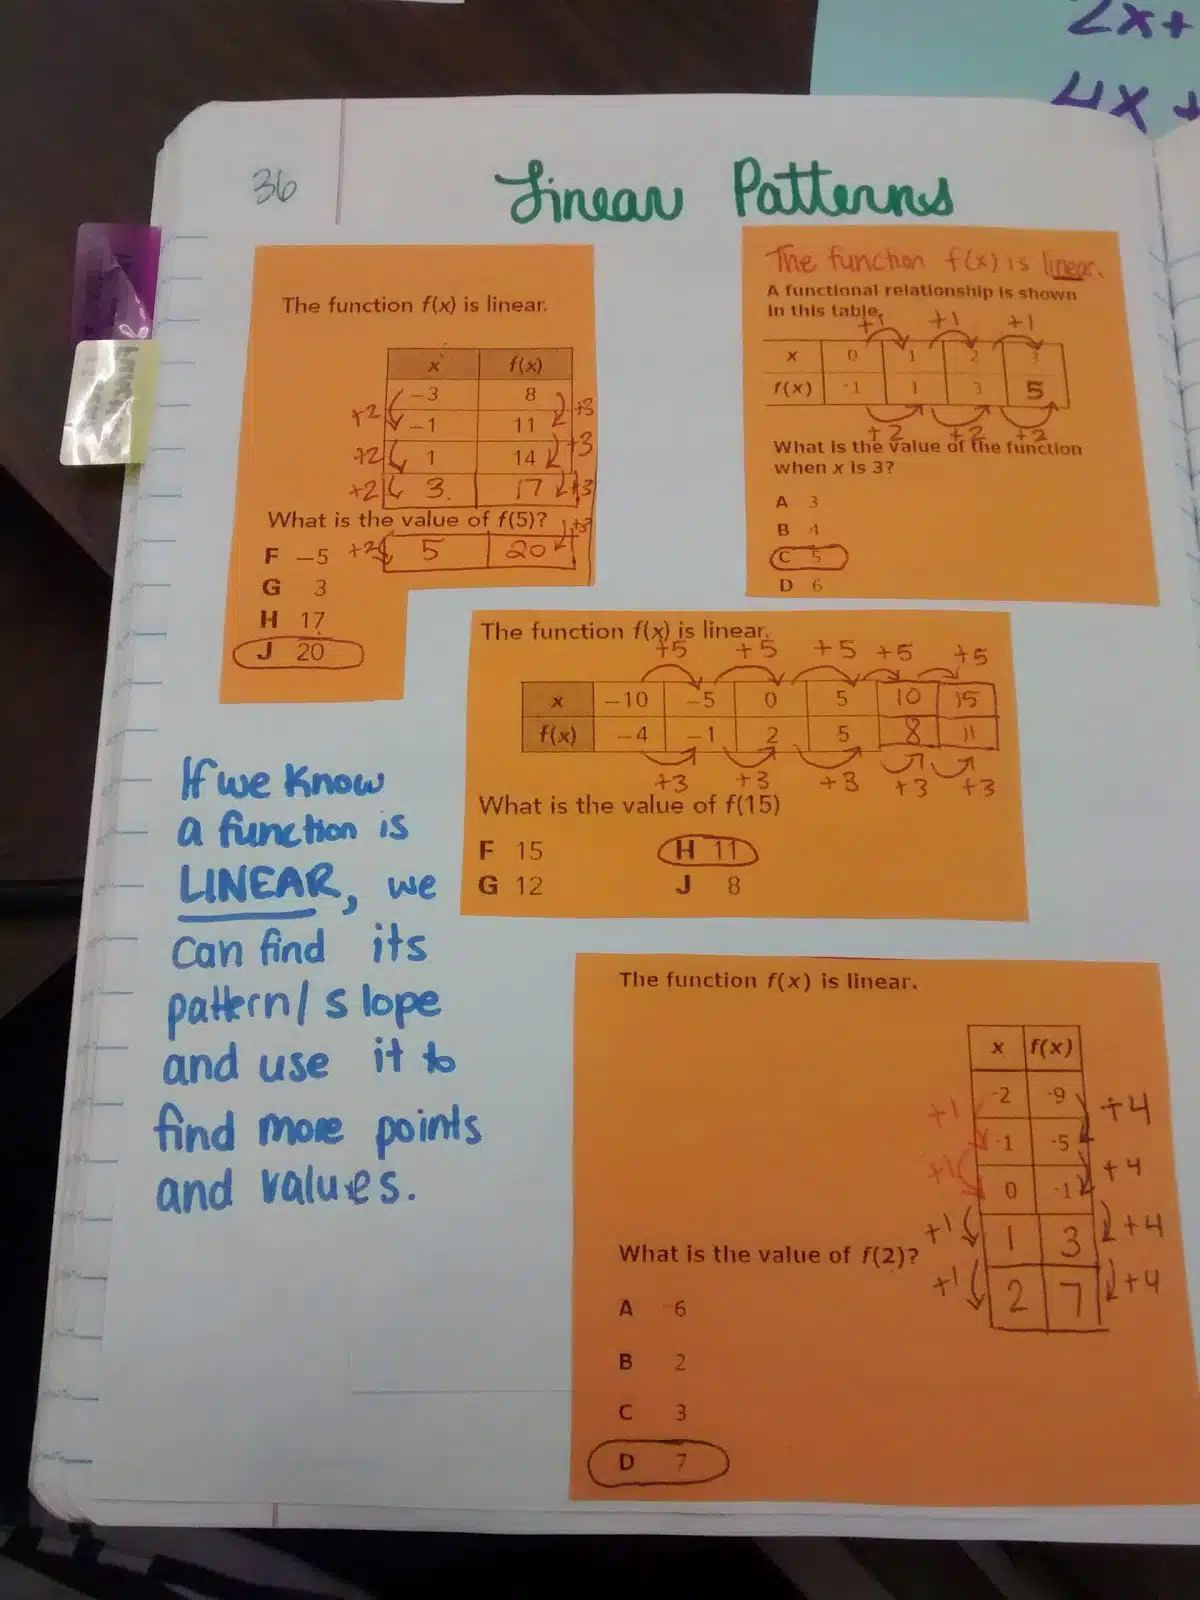 2x+
4x +
36
Linear Patterns
The function f(x) is linear.
x f(x)
+2 −3 8 +3
−1 11
+2 1 14 +3
+2 3. 17 +3
What is the value of f(5)? +3
+2 5 20
F −5
G 3
H 17
J 20
The function f(x) is linear.
A functional relationship is shown
in this table.
+1 +1 +1
x 0 1 2 3
f(x) -1 1 3 5
+2 +2 +2
What is the value of the function
when x is 3?
A 3
B 4
C 5
D 6
The function f(x) is linear.
+5 +5 +5 +5 +5
x −10 −5 0 5 10 15
f(x) −4 −1 2 5 8 11
+3 +3 +3 +3 +3
What is the value of f(15)
F 15 H 11
G 12 J 8
If we know
a function is
LINEAR, we
can find its
pattern/slope
and use it to
find more points
and values.
The function f(x) is linear.
x f(x)
-2 -9
+1 +4
-1 -5
+1 +4
0 -1
+1 1 3 +4
What is the value of f(2)?
+1 2 7 +4
A -6
B 2
C 3
D 7